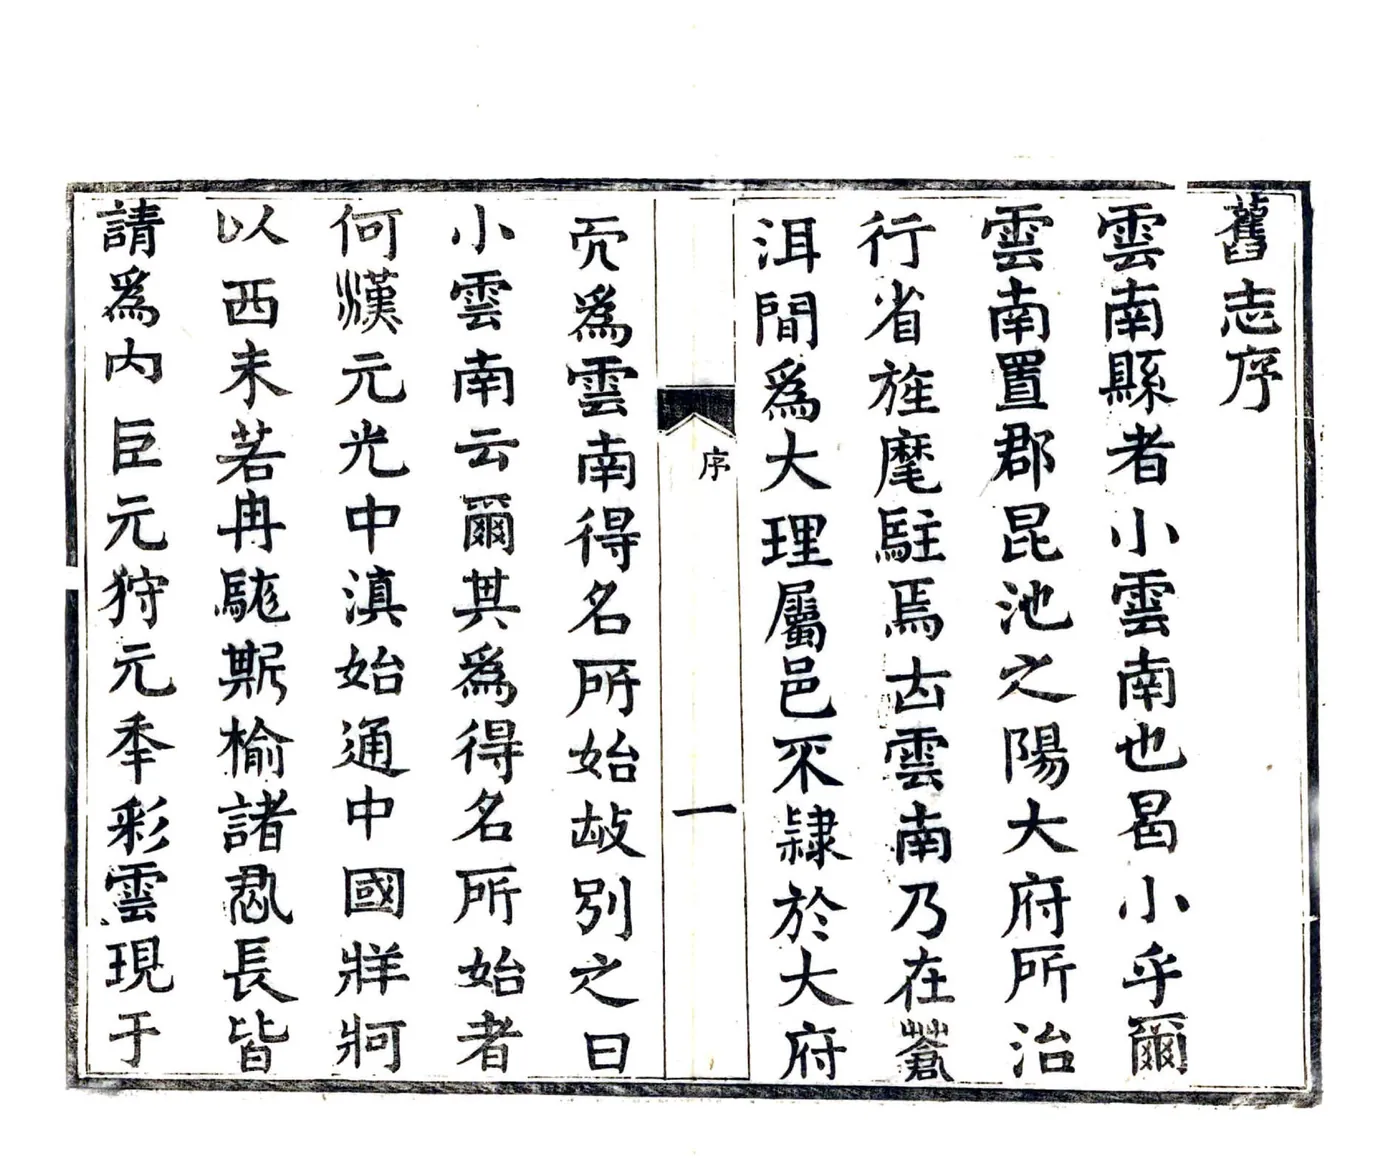 舊志序
雲南縣者小雲南也曷小乎爾
雲南置郡昆池之陽大府所治
行省旌麾駐焉古雲南乃在蒼
洱間為大理屬邑不隸於大府
序
一
而為雲南得名所始故別之曰
小雲南云爾其為得名所始者
何漢元光中滇始通中國牂牁
以西未若冉駹斯榆諸君長皆
請為內臣元狩元年彩雲現于